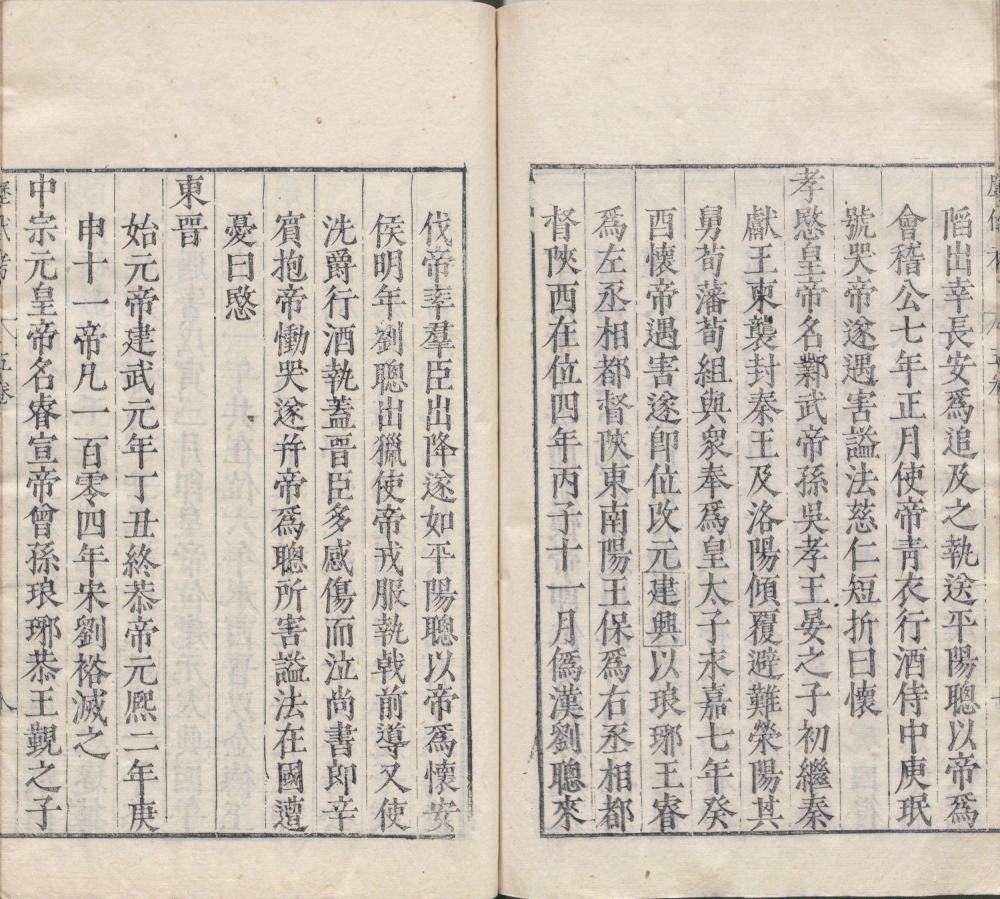 陷出幸長安爲追及之執送平陽聰以帝爲
會稽公七年正月使帝青衣行酒侍中庾珉
號哭帝遂遇害謚法慈仁短折曰懷
孝愍皇帝名鄴武帝孫吳孝王晏之子初繼秦
獻王東襲封秦王及洛陽傾覆避難滎陽其
舅荀藩荀組與衆奉爲皇太子末嘉七年癸
酉懷帝遇害遂卽位改元建興以琅琊王睿
爲左丞相都督陝東南陽王保爲右丞相都
督陝西在位四年丙子十一月僞漢劉聰來
伐帝率羣臣出降遂如平陽聰以帝爲懷安
侯明年劉聰出獵使帝戎服執戟前導又使
洗爵行酒執蓋晋臣多感傷而泣尚書郎辛
賓抱帝慟哭遂幷帝爲聰所害謚法在國遭
憂曰愍
東晋
始元帝建武元年丁丑終恭帝元熈二年庚
申十一帝凡一百零四年宋劉裕滅之
中宗元皇帝名睿宣帝曾孫琅琊恭王覲之子